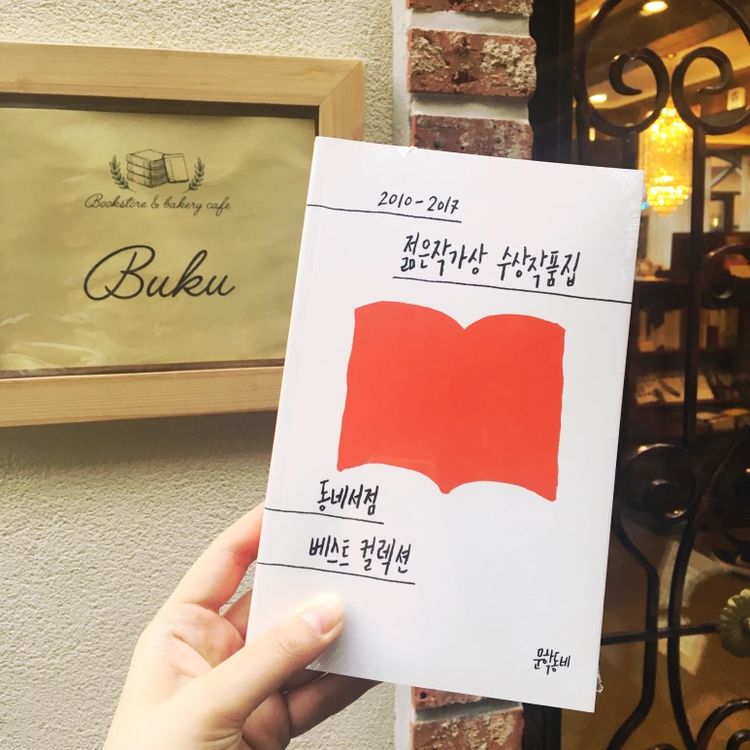 Bookstore & bakery cafe
Buku
2010-2017
젊은작가상 수상작품집
동네서점
베스트 컬렉션
문학동네